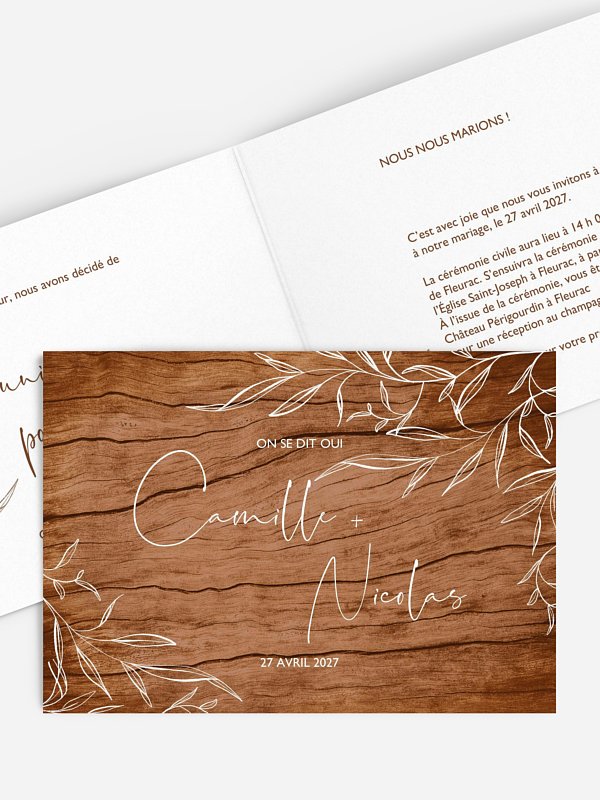 NOUS NOUS MARIONS !
C'est avec joie que nous vous invitons à
à notre mariage, le 27 avril 2027.
La cérémonie civile aura lieu à 14 h
de Fleurac. S'ensuivra la cérémonie
l'Église Saint-Joseph à Fleurac, à
À l'issue de la cérémonie, vous
Château Périgourdin à Fleurac
une réception au champagne
votre
nous avons décidé de
ON SE DIT OUI
Camille +
Nicolas
27 AVRIL 2027